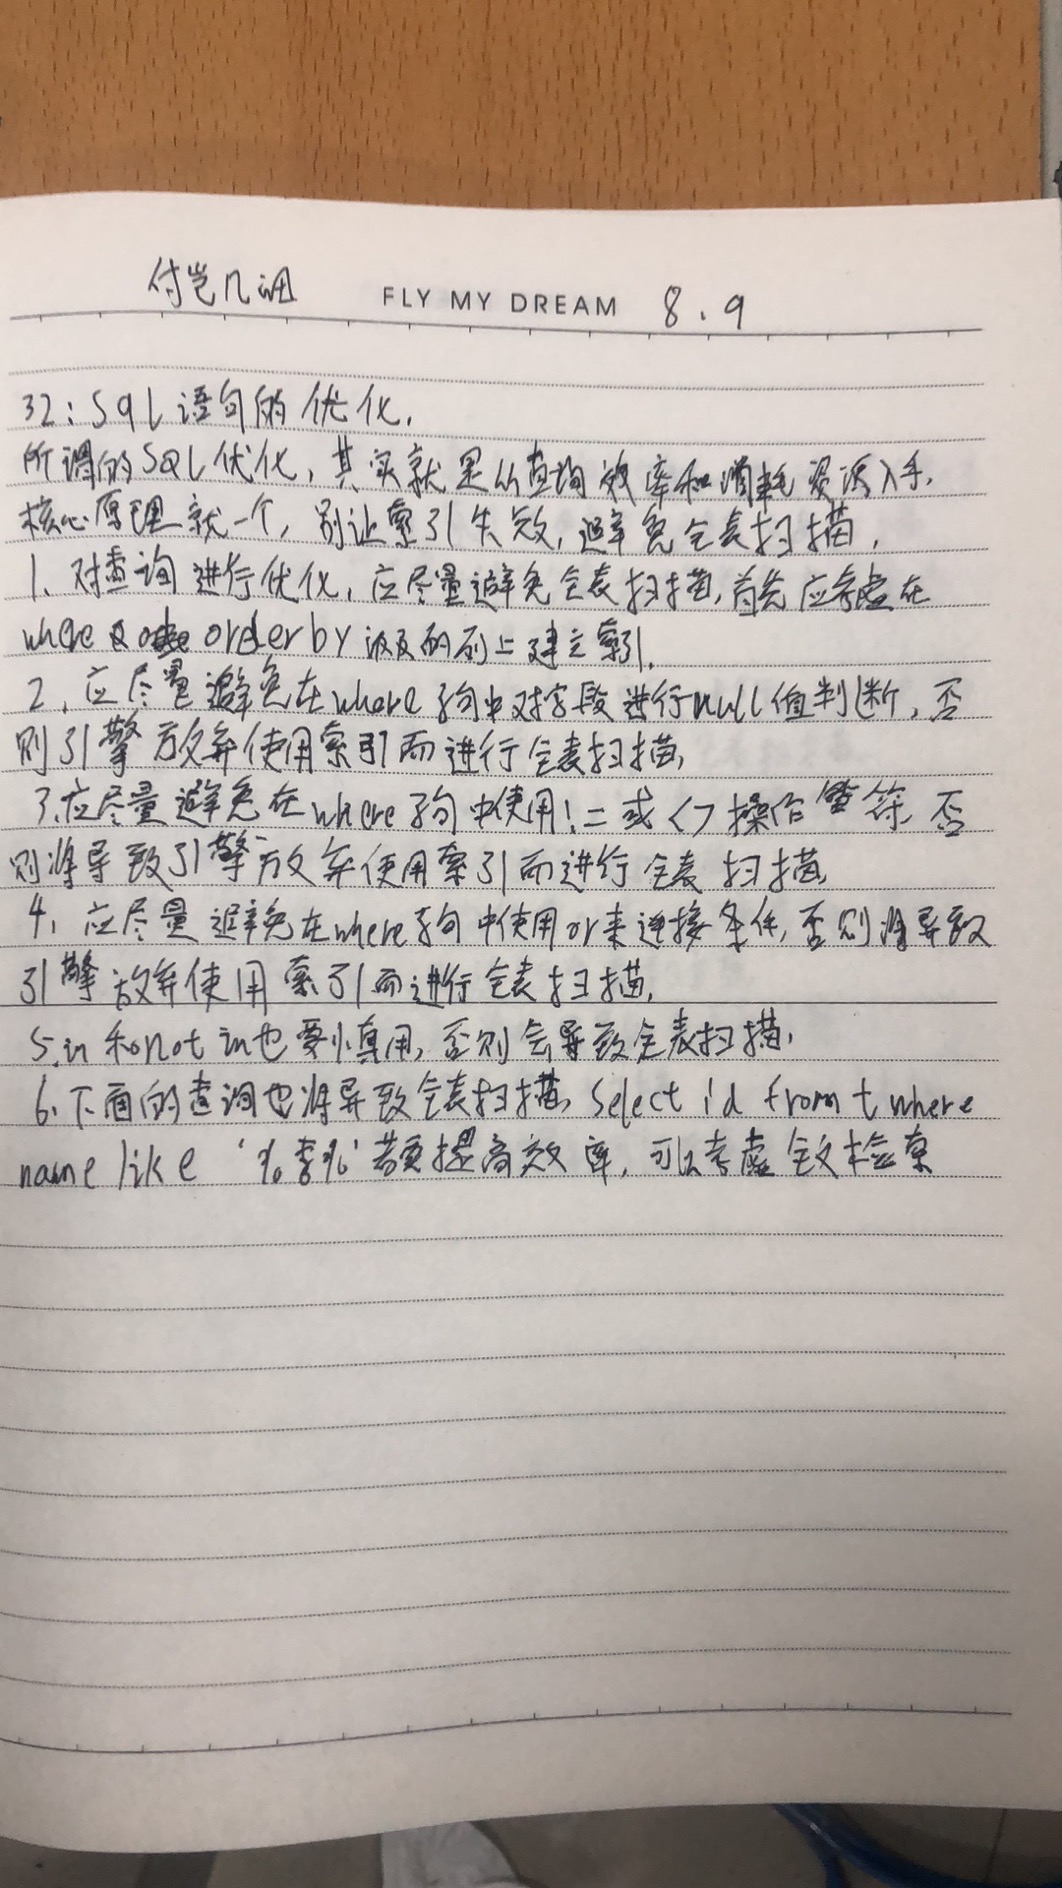 FLY MY DREAM 8.9
32:SqL语句的优化.
所谓的SQL优化,其实就是从查询效率和消耗资源入手.
核心原理就一个,别让索引失效,避免全表扫描,
1、对查询进行优化,应尽量避免全表扫描,首先应考虑在
where及 order by 涉及的列上建立索引.
2、应尽量避免在where子句中对字段进行null值判断,否
则引擎放弃使用索引而进行全表扫描,
3.应尽量避免在where子句中使用!=或<>操作符,否
则将导致引擎放弃使用索引而进行全表扫描,
4、应尽量避免在where子句中使用or来连接条件,否则将导致
引擎放弃使用索引而进行全表扫描,
5.in和not in也要慎用,否则会导致全表扫描,
6、下面的查询也将导致全表扫描,Select id from t where
name like '%李%'若要提高效率,可以考虑全文检索